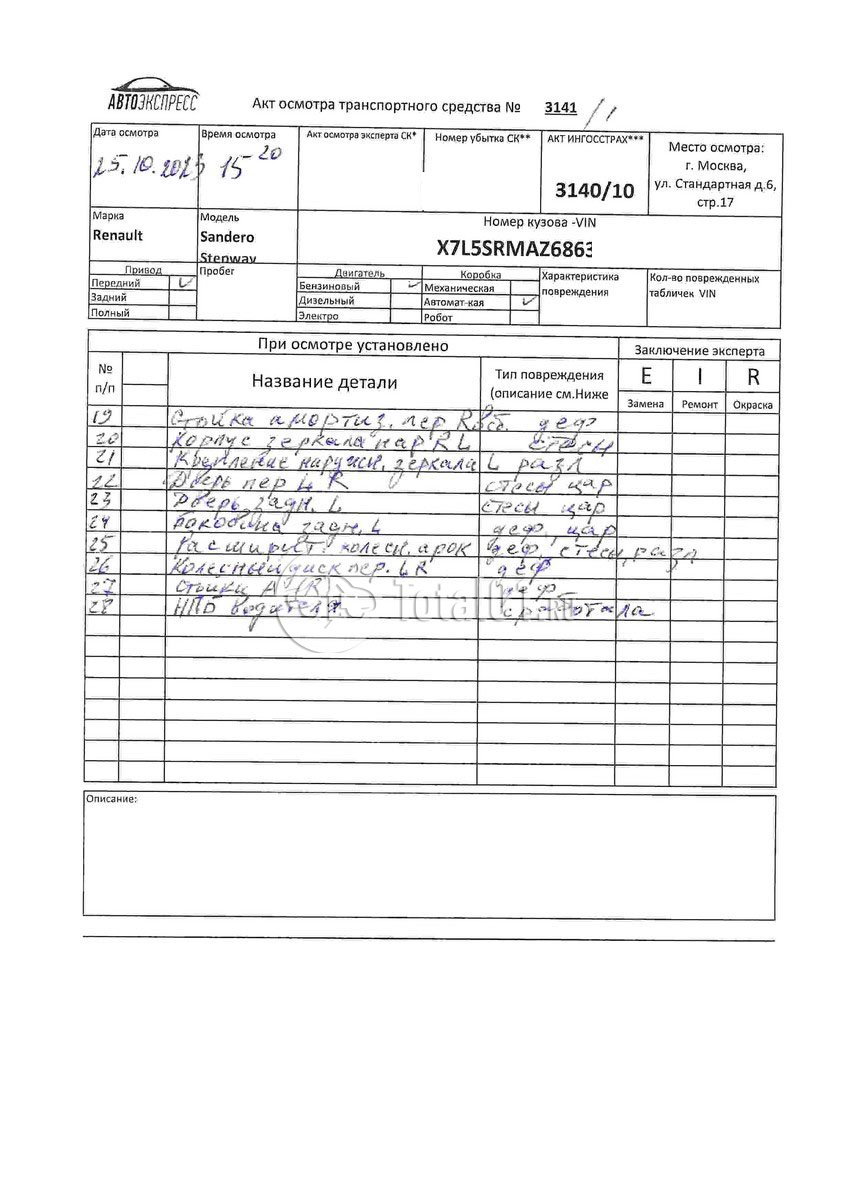 АВТОЭКСПРЕСС
Акт осмотра транспортного средства № 3141/1
Дата осмотра
25.10.2023
Время осмотра
15 20
Акт осмотра эксперта СК*
Номер убытка СК**
АКТ ИНГОССТРАХ***
3140/10
Место осмотра:
г. Москва,
ул. Стандартная д.6,
стр.17
Марка
Renault
Модель
Sandero
Stepway
Номер кузова -VIN
X7L5SRMAZ6863
Привод
Передний
Задний
Полный
Пробег
Двигатель
Бензиновый
Дизельный
Электро
Коробка
Механическая
Автомат-кая
Робот
Характеристика
повреждения
Кол-во поврежденных
табличек VIN
При осмотре установлено
Заключение эксперта
№
п/п
Название детали
Тип повреждения
(описание см.Ниже
E I R
Замена Ремонт Окраска
19 Стойка амортиз. пер. R деф
20 Корпус зеркала нар R L стесы
21 Крепление наружн. зеркала L разл
22 Дверь пер L R стесы цар
23 Дверь задн. L стесы цар
24 Боковина задн. L деф, цар
25 Расширит. колесн. арок деф, стесы, разл
26 Колесный диск пер. L R деф
27 Стойки А деф
28 НПБ водителя сработала
Total01.ru
Описание: